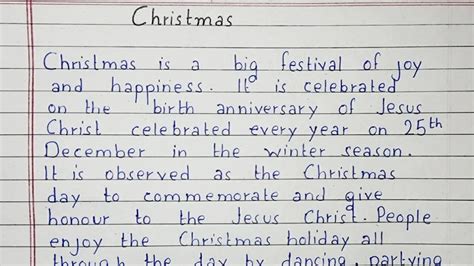 Christmas
Christmas is a big festival of joy
and happiness. It is celebrated
on the birth anniversary of Jesus
Christ celebrated every year on 25th
December in the winter season.
It is observed as the Christmas
day to commemorate and give
honour to the Jesus Christ. People
enjoy the Christmas holiday all
through the day by dancing, partying